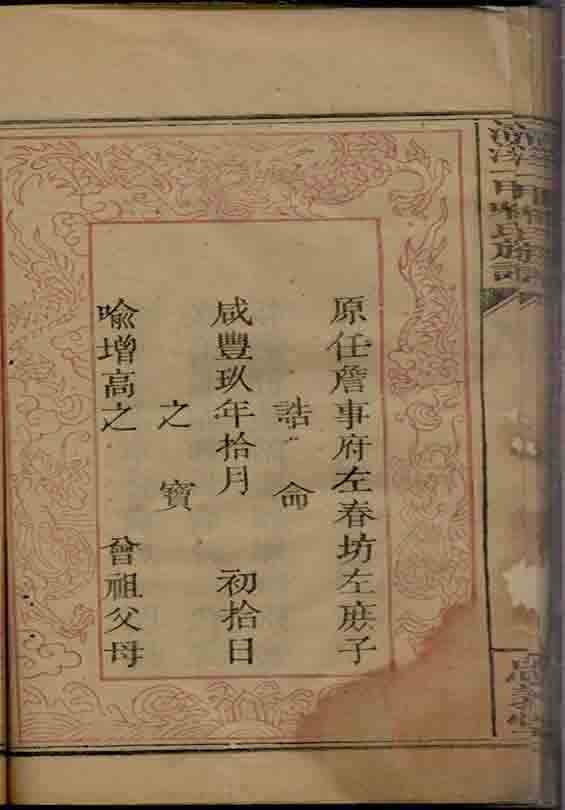 原任詹事府左春坊左庶子
誥命
咸豐玖年拾月 初拾日
之寶
喻增高之 曾祖父母